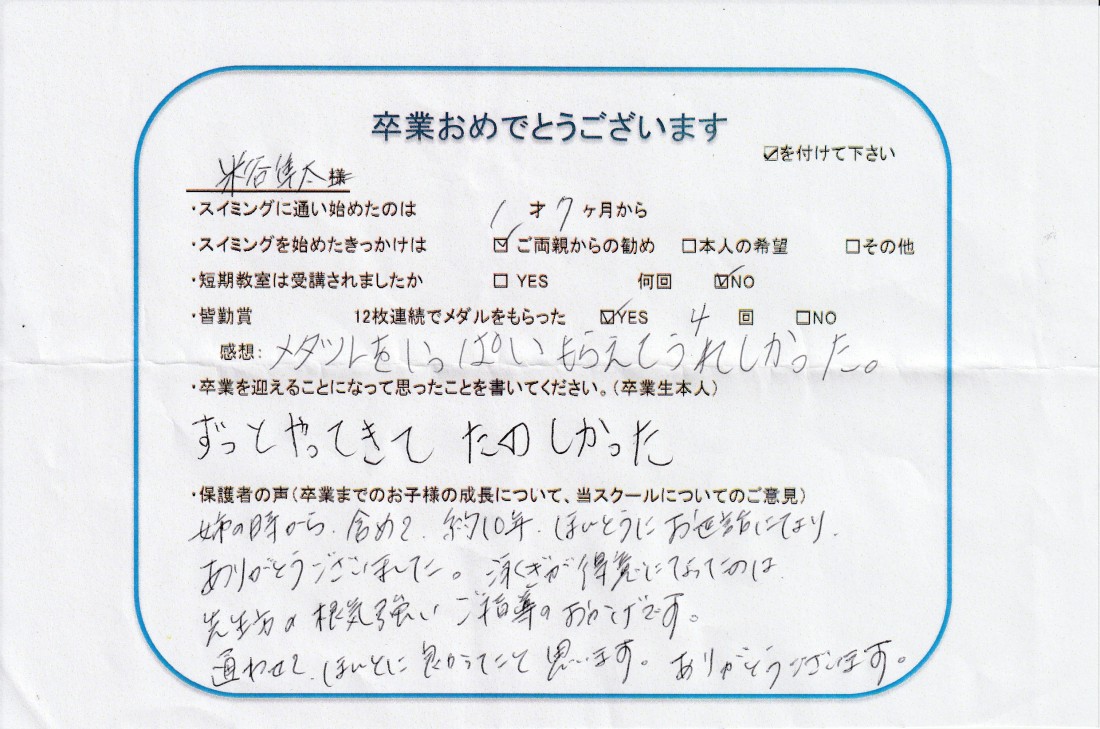 卒業おめでとうございます
☑を付けて下さい
米谷隼太様
・スイミングに通い始めたのは 1才7ヶ月から
・スイミングを始めたきっかけは ☑ご両親からの勧め □本人の希望 □その他
・短期教室は受講されましたか □YES 何回 ☑NO
・皆勤賞 12枚連続でメダルをもらった ☑YES 4回 □NO
感想：メダルをいっぱいもらえてうれしかった。
・卒業を迎えることになって思ったことを書いてください。（卒業生本人）
ずっとやってきて たのしかった
・保護者の声（卒業までのお子様の成長について、当スクールについてのご意見）
姉の時から、含めて、約10年、ほんとうにお世話になり、
ありがとうございました。泳ぎが得意になったのは
先生方の根気強いご指導のおかげです。
通わせて、ほんとに良かったと思います。ありがとうございます。